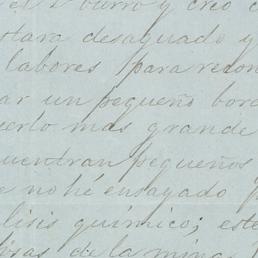 el barro y creo
estara desaguado y
labores para recon
ar un pequeño bord
uerto mas grande
cuentran pequeños
e no hé ensayado
lisis quimico; este
de la mina